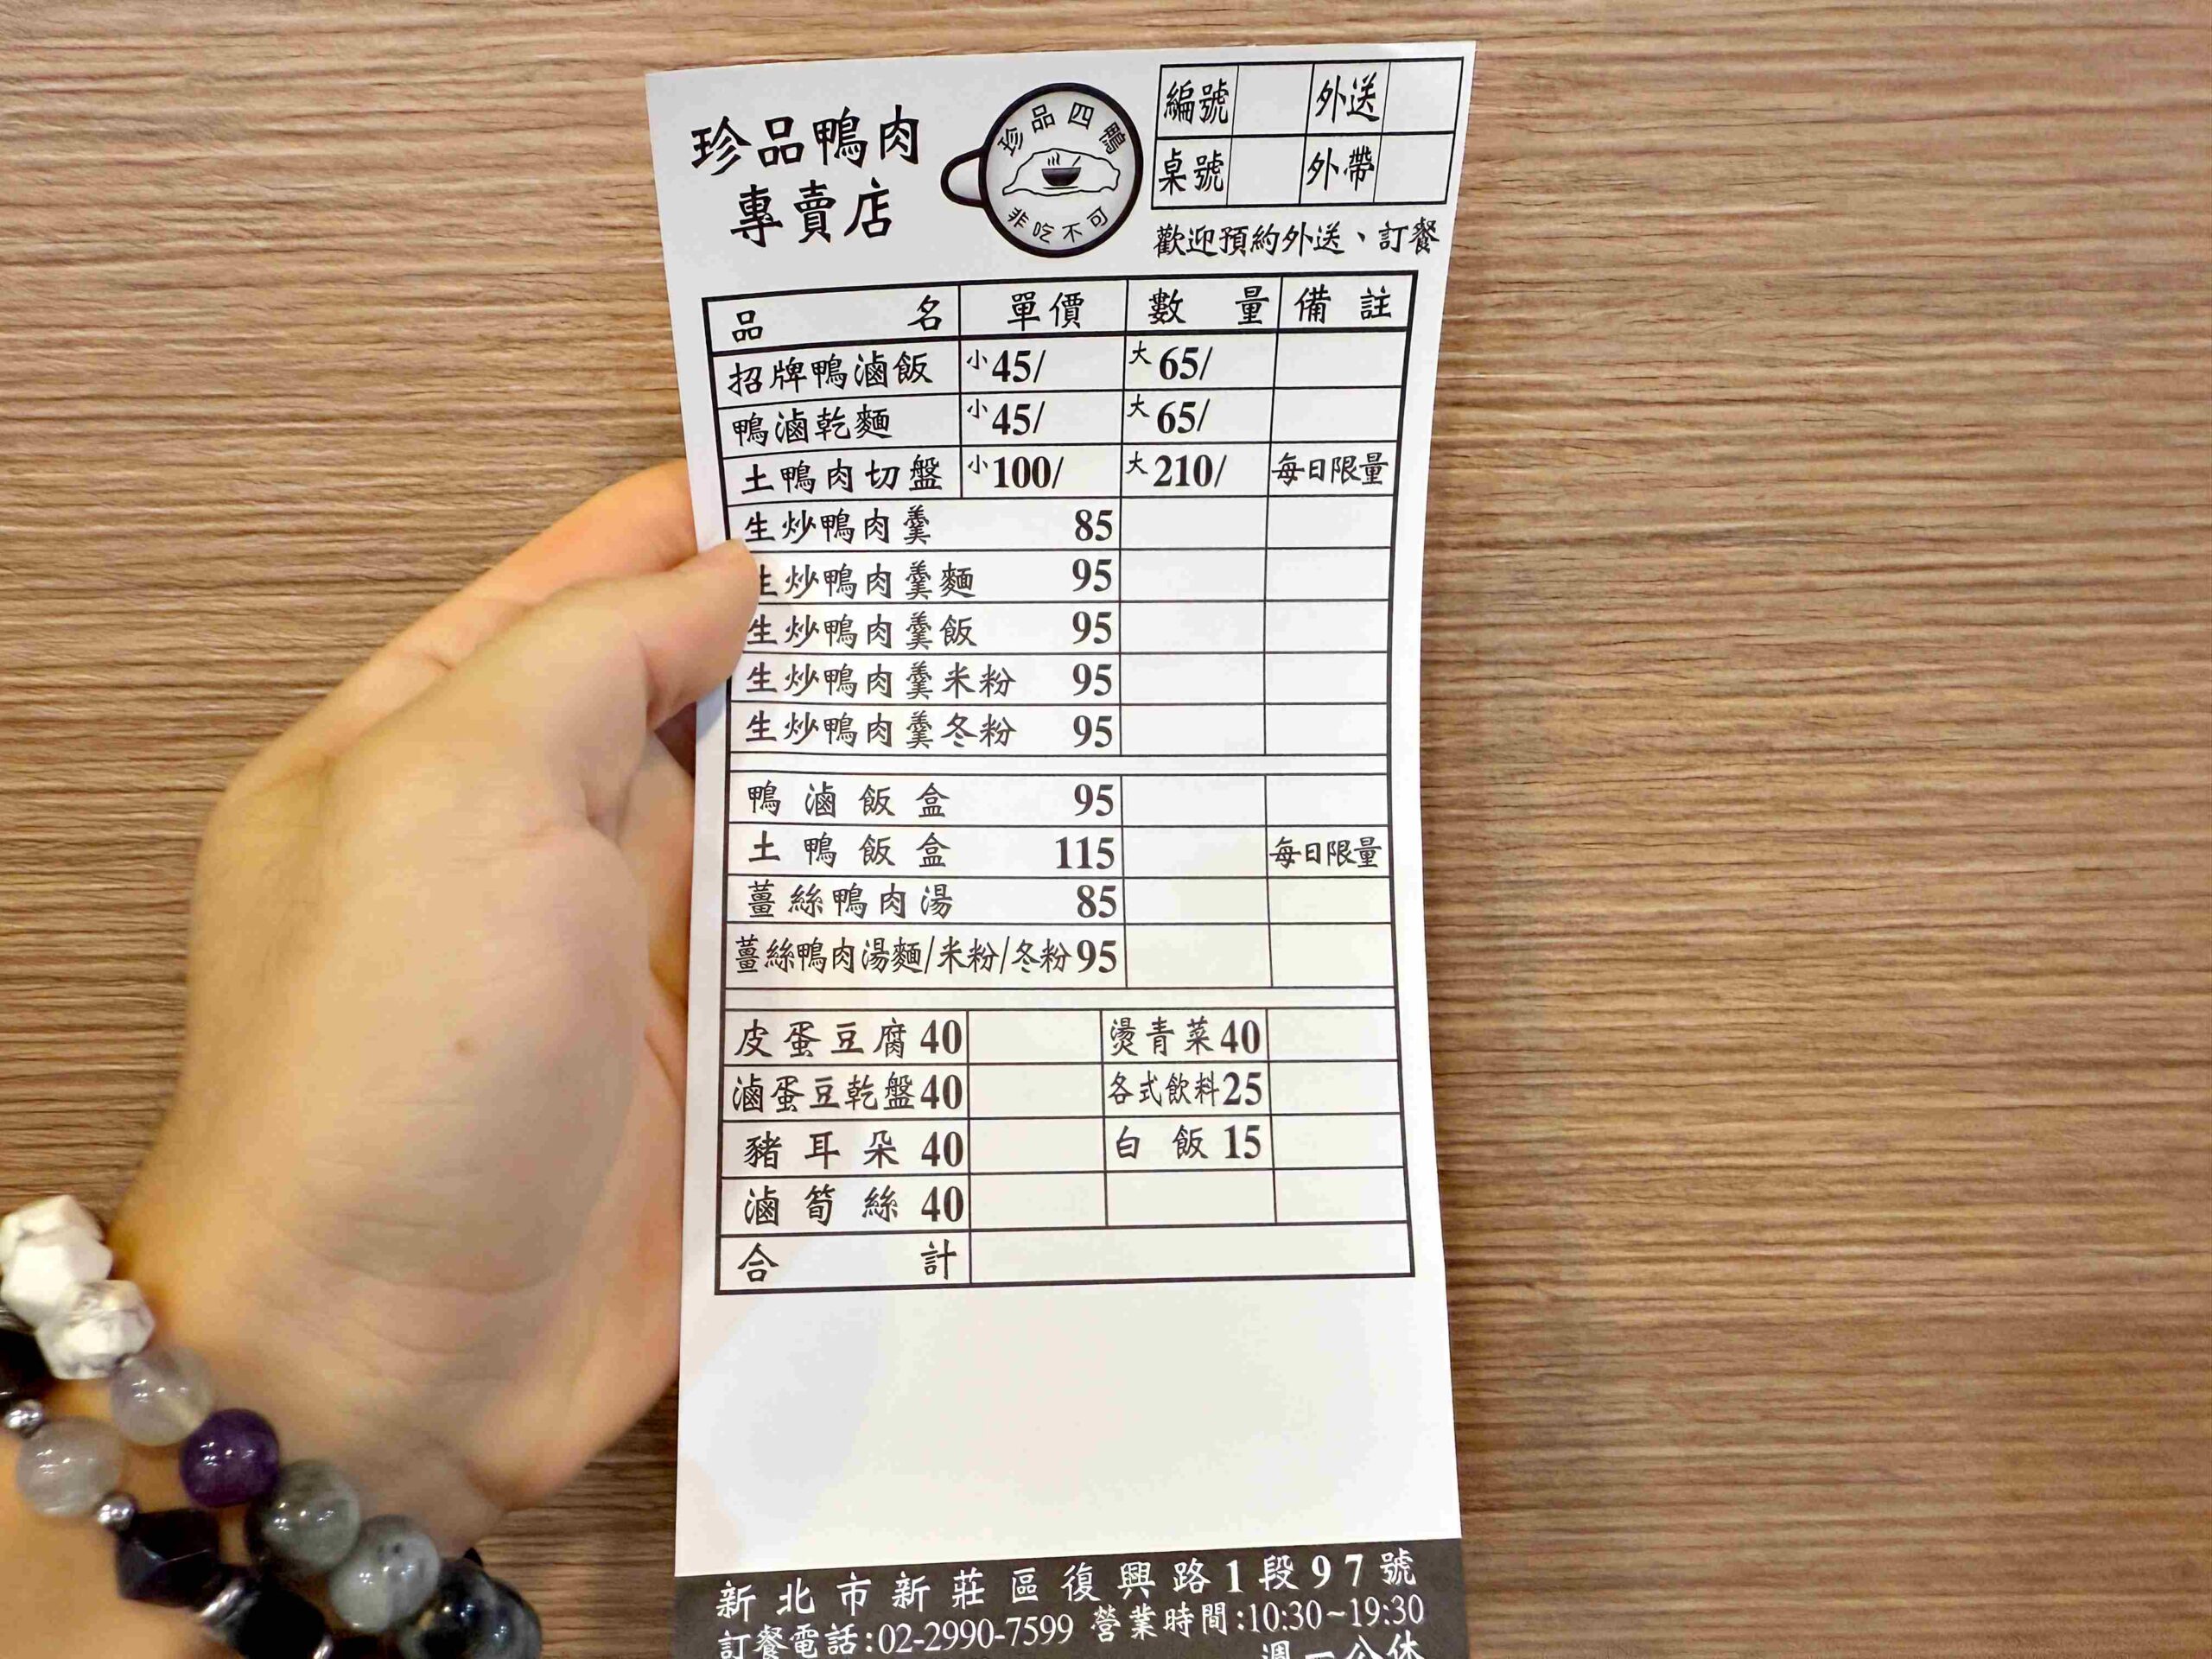 珍品鴨肉
專賣店
珍品四鴨
非吃不可
編號 外送
桌號 外帶
歡迎預約外送、訂餐
品名 單價 數量 備註
招牌鴨滷飯 小45/ 大65/
鴨滷乾麵 小45/ 大65/
土鴨肉切盤 小100/ 大210/ 每日限量
生炒鴨肉羹 85
生炒鴨肉羹麵 95
生炒鴨肉羹飯 95
生炒鴨肉羹米粉 95
生炒鴨肉羹冬粉 95
鴨滷飯盒 95
土鴨飯盒 115 每日限量
薑絲鴨肉湯 85
薑絲鴨肉湯麵/米粉/冬粉 95
皮蛋豆腐 40 燙青菜 40
滷蛋豆乾盤 40 各式飲料 25
豬耳朵 40 白飯 15
滷筍絲 40
合計
新北市新莊區復興路1段97號
訂餐電話:02-2990-7599 營業時間:10:30~19:30
週一公休